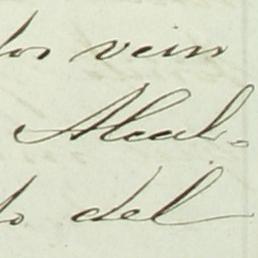 los vein
Alcal-
to del